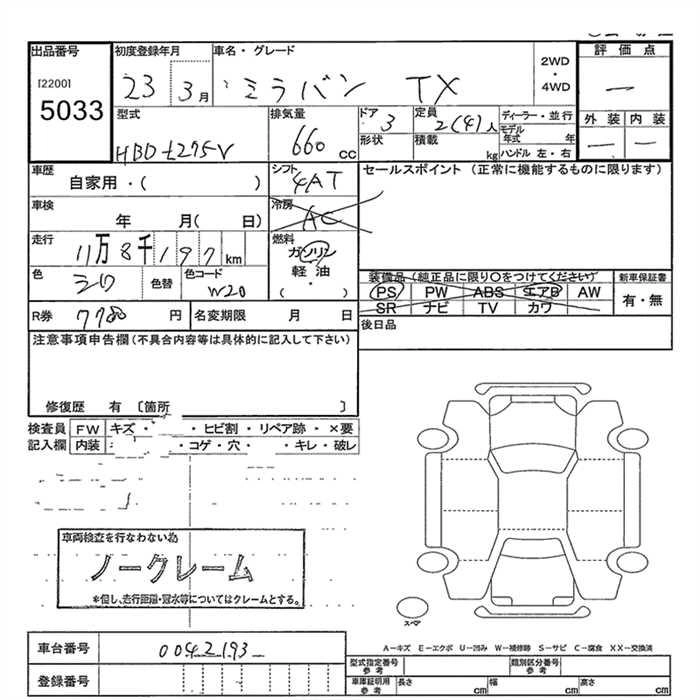 出品番号 初度登録年月 車名・グレード 評価点
[2200] 23 3月 ミラバン TX 2WD・4WD ー
5033
型式 排気量 ドア 定員 ディーラー・並行 外装 内装
HBD-L275V 660 cc 3 2(4)人 モデル年式 年 ー ー
形状 積載 kg ハンドル 左・右
車歴 シフト セールスポイント (正常に機能するものに限ります)
自家用・( ) 4AT
車検 冷房
年 月( 日) AC
走行 燃料
11万8千197km ガソリン
軽油
・
( )
色 シロ 色替 色コード W20
装備品(純正品に限り○をつけてください) 新車保証書
PS PW ABS エアB AW 有・無
SR ナビ TV カワ
R券 7780 円 名変期限 月 日 後日品
注意事項申告欄(不具合内容等は具体的に記入して下さい)
修復歴 有 [箇所 ]
検査員 FW キズ・ ・ヒビ割・リペア跡・×要
記入欄 内装 ・コゲ・穴・ ・キレ・破レ
車両検査を行なわない為
ノークレーム
*但し、走行距離・冠水等についてはクレームとする。
スペア
車台番号 0042193
A-キズ E-エクボ U-凹み W-補修跡 S-サビ C-腐食 XX-交換済
登録番号
型式指定番号 参考 類別区分番号 参考
車庫証明用 参考 長さ cm 幅 cm 高さ cm